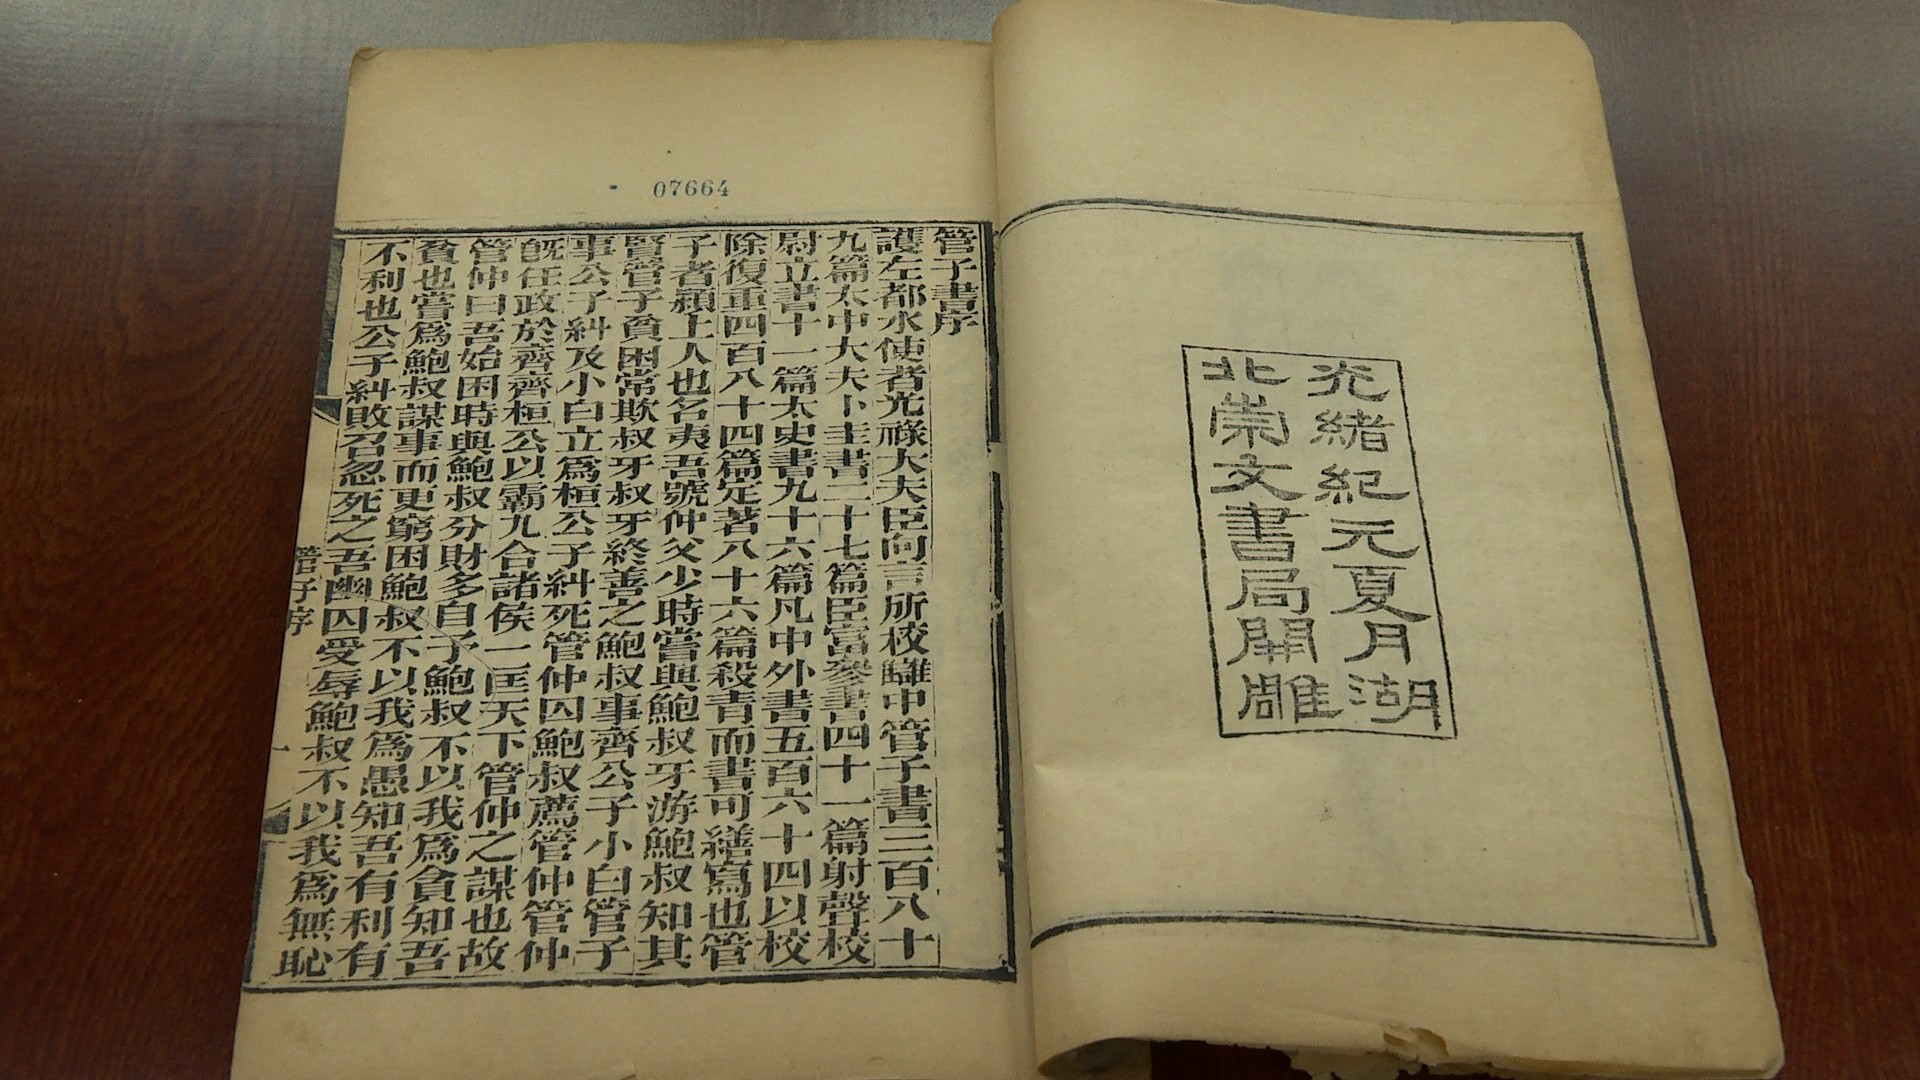 光緒紀元夏月湖
北崇文書局開雕
07664
管子書序
護左都水使者光祿大夫臣向言所校讎中管子書三百八十
九篇太中大夫卜圭書二十七篇臣富參書四十一篇射聲校
尉立書十一篇太史書九十六篇凡中外書五百六十四以校
除復重四百八十四篇定著八十六篇殺青而書可繕寫也管
子者潁上人也名夷吾號仲父少時嘗與鮑叔牙游鮑叔知其
賢管子貧困常欺叔牙叔牙終善之鮑叔事齊公子小白管子
事公子糾及小白立爲桓公子糾死管仲囚鮑叔薦管仲管仲
旣任政於齊齊桓公以霸九合諸侯一匡天下管仲之謀也故
管仲曰吾始困時與鮑叔分財多自予鮑叔不以我爲貪知吾
貧也嘗爲鮑叔謀事而更窮困鮑叔不以我爲愚知吾有利有
不利也公子糾敗召忽死之吾幽囚受辱鮑叔不以我爲無恥
管子序
一